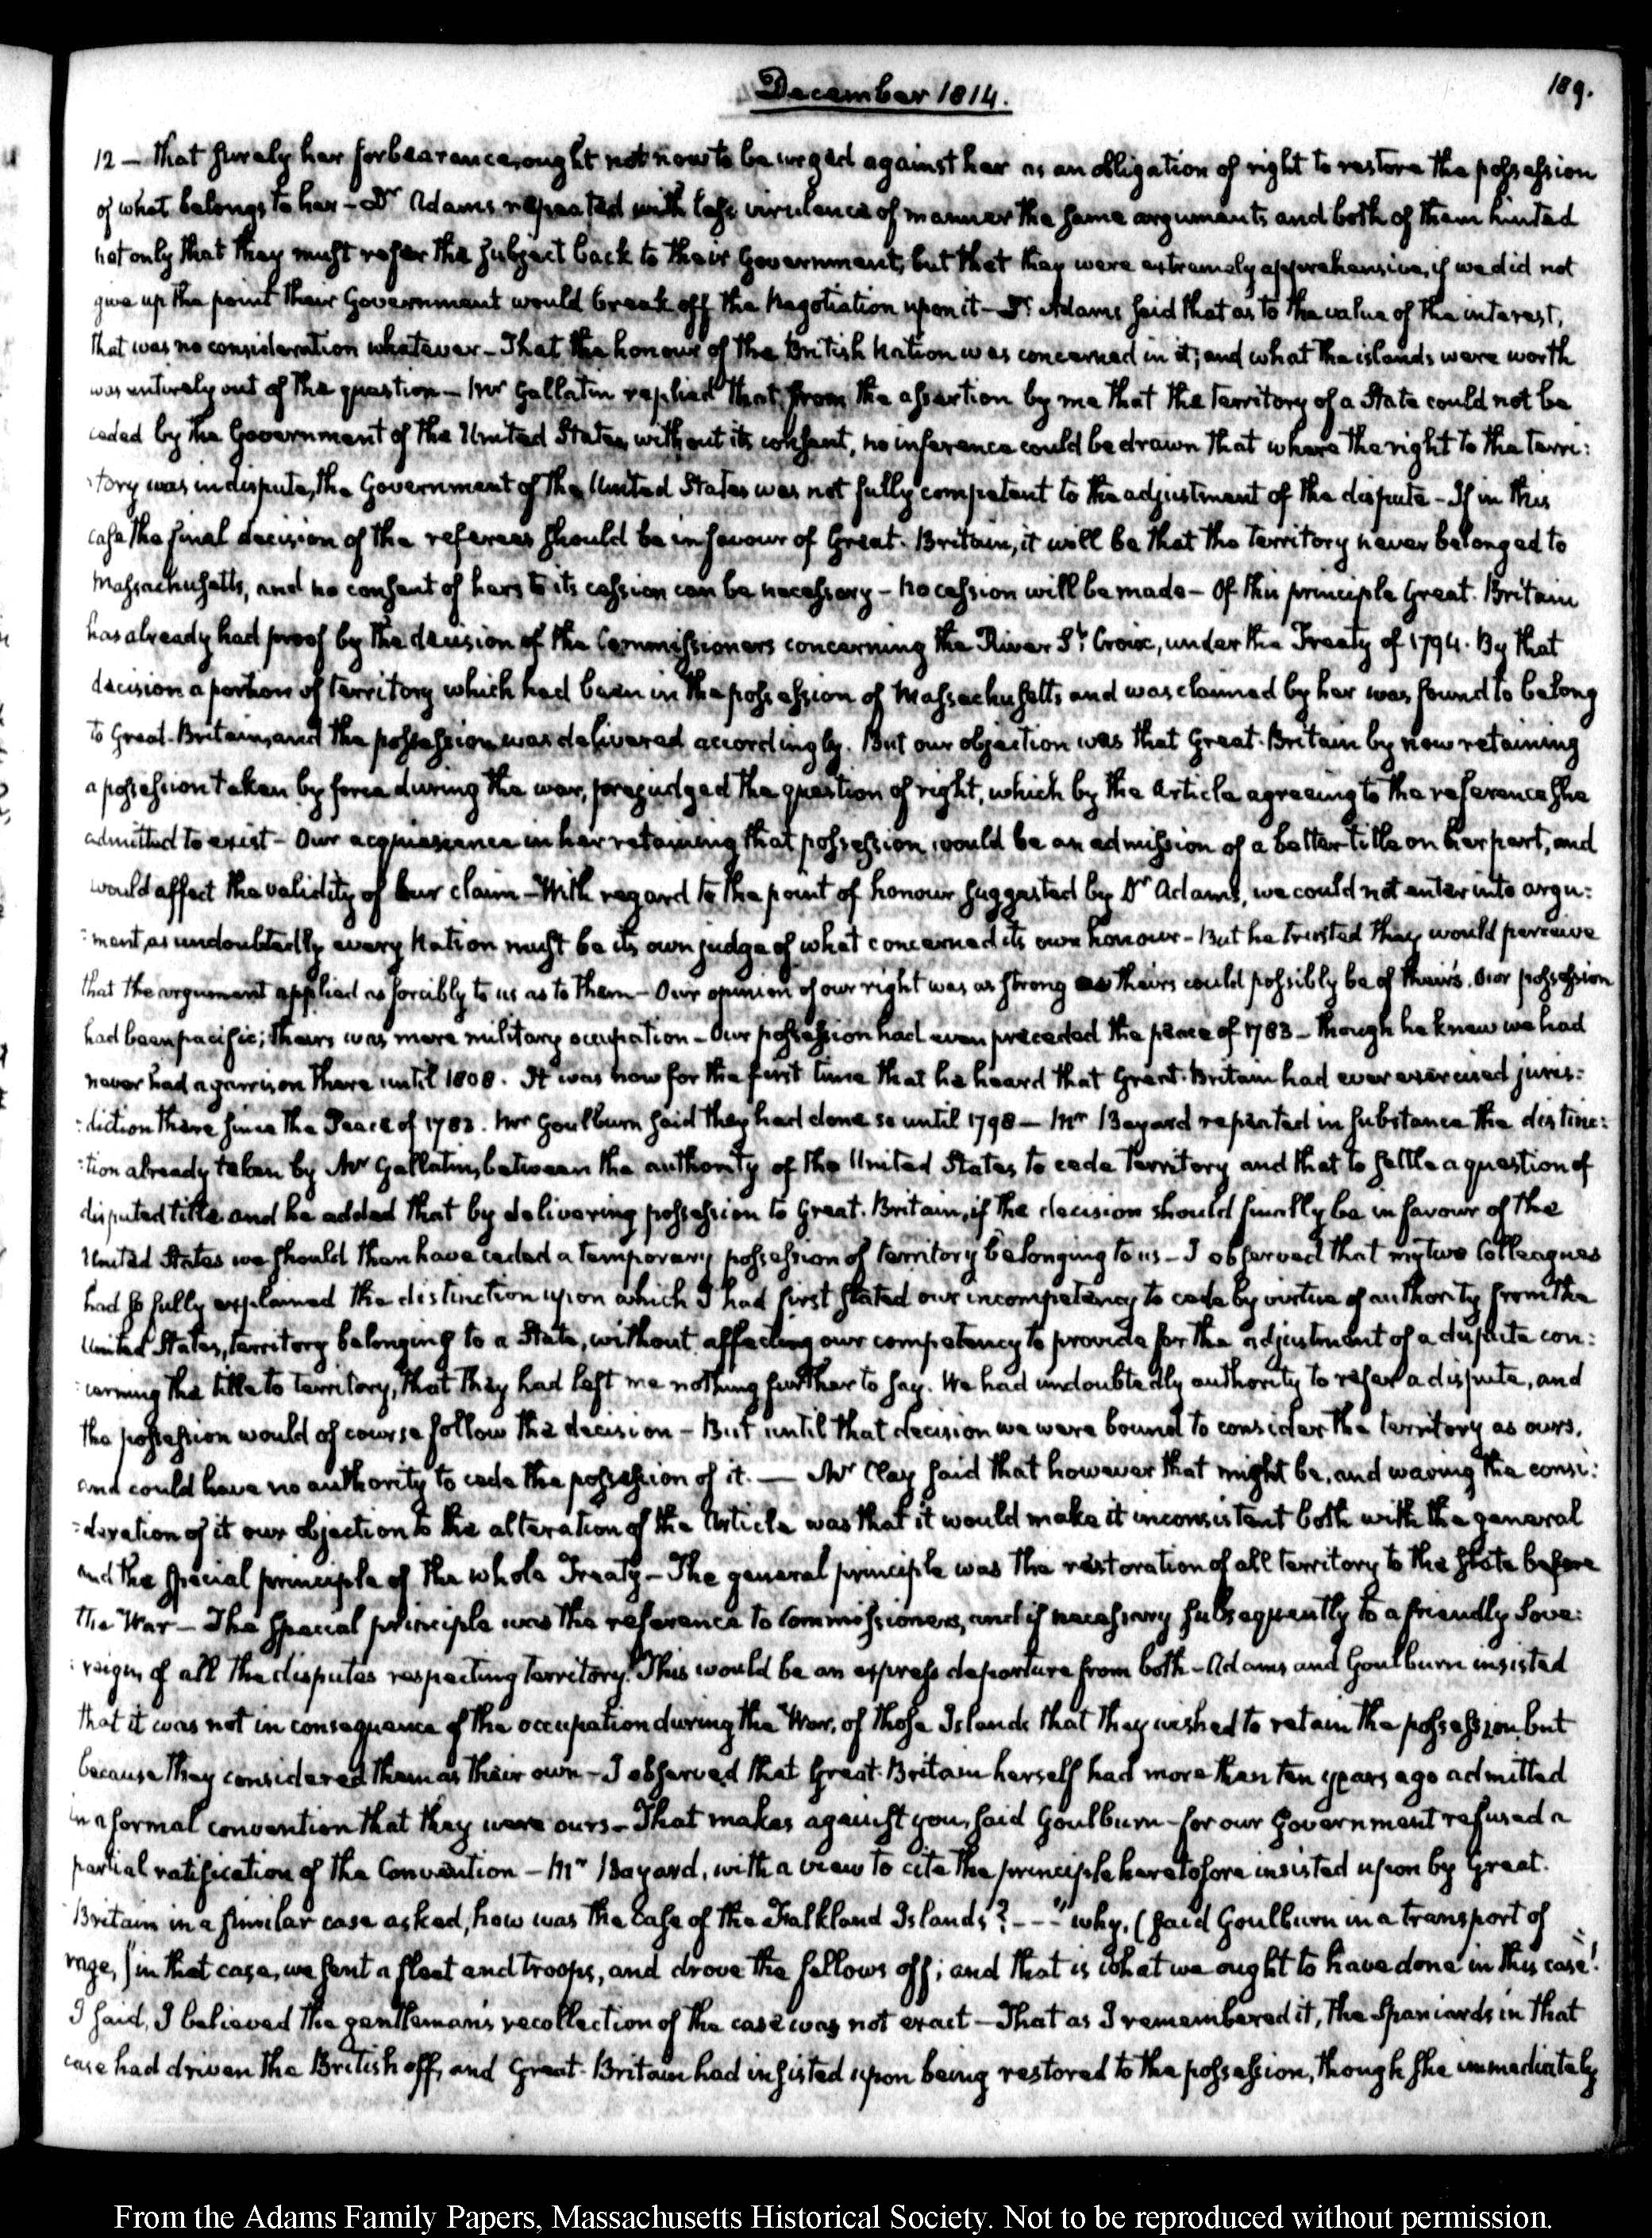 December 1814.
189.
12 — that surely her forbearance, ought not now to be urged against her as an obligation of right to restore the possession
of what belongs to her – Dr Adams repeated with less virulence of manner the same arguments and both of them hinted
not only that they must refer the subject back to their Government, but that they were extremely apprehensive, if we did not
give up the point their Government would break off the Negotiation upon it – Dr Adams said that as to the value of the interest,
that was no consideration whatever – That the honour of the British Nation was concerned in it; and what the islands were worth
was entirely out of the question – Mr Gallatin replied that from the assertion by me that the territory of a State could not be
ceded by the Government of the United States without its consent, no inference could be drawn that where the right to the terri:
:tory was in dispute, the Government of the United States was not fully competent to the adjustment of the dispute – If in this
case the final decision of the referees should be in favour of Great-Britain, it will be that the territory never belonged to
Massachusetts, and no consent of hers to its cession can be necessary – No cession will be made – Of this principle Great-Britain
has already had proof by the decision of the Commissioners concerning the River St. Croix, under the Treaty of 1794. By that
decision a portion of territory which had been in the possession of Massachusetts and was claimed by her was found to belong
to Great-Britain, and the possession was delivered accordingly. But our objection was that Great-Britain by now retaining
a possession taken by force during the war, prejudged the question of right, which by the Article agreeing to the reference she
admitted to exist – Our acquiescence in her retaining that possession, would be an admission of a better title on her part, and
would affect the validity of our claim – With regard to the point of honour suggested by Dr Adams, we could not enter into argu:
:ment, as undoubtedly every Nation must be its own judge of what concerned its own honour – But he trusted they would perceive
that the argument applied as forcibly to us as to them – Our opinion of our right was as strong as theirs could possibly be of theirs. Our possession
had been pacific; theirs was mere military occupation – Our possession had even preceded the peace of 1783 – though he knew we had
never had a garrison there until 1808. It was now for the first time that he heard that Great-Britain had ever exercised juris:
:diction there since the Peace of 1783. Mr Goulburn said they had done so until 1798 — Mr Bayard repeated in substance the distinc:
:tion already taken by Mr Gallatin, between the authority of the United States to cede territory and that to settle a question of
disputed title and he added that by delivering possession to Great-Britain, if the decision should finally be in favour of the
United States we should then have ceded a temporary possession of territory belonging to us – I observed that my two Colleagues
had so fully explained the distinction upon which I had first stated our incompetency to cede by virtue of authority from the
United States, territory belonging to a State, without affecting our competency to provide for the adjustment of a dispute con:
:cerning the title to territory, that they had left me nothing further to say. We had undoubtedly authority to refer a dispute, and
the possession would of course follow the decision – But until that decision we were bound to consider the territory as ours,
and could have no authority to cede the possession of it. — Mr Clay said that however that might be, and waving the consi:
:deration of it our objection to the alteration of the Article was that it would make it inconsistent both with the general
and the special principle of the whole Treaty – The general principle was the restoration of all territory to the state before
the War – The special principle was the reference to Commissioners, and if necessary subsequently to a friendly Sove:
:reign, of all the disputes respecting territory. This would be an express departure from both – Adams and Goulburn insisted
that it was not in consequence of the occupation during the War, of those Islands that they wished to retain the possession, but
because they considered them as their own – I observed that Great-Britain herself had more than ten years ago admitted
in a formal convention that they were ours – That makes against you, said Goulburn – for our Government refused a
partial ratification of the Convention – Mr Bayard, with a view to cite the principle heretofore insisted upon by Great-
Britain in a similar case asked, how was the case of the Falkland Islands? – – – "why, (said Goulburn in a transport of
rage,) in that case, we sent a fleet and troops, and drove the fellows off; and that is what we ought to have done in this case"!
I said, I believed the gentleman's recollection of the case was not exact – That as I remembered it, the Spaniards in that
case had driven the British off, and Great-Britain had insisted upon being restored to the possession, though she immediately
From the Adams Family Papers, Massachusetts Historical Society. Not to be reproduced without permission.